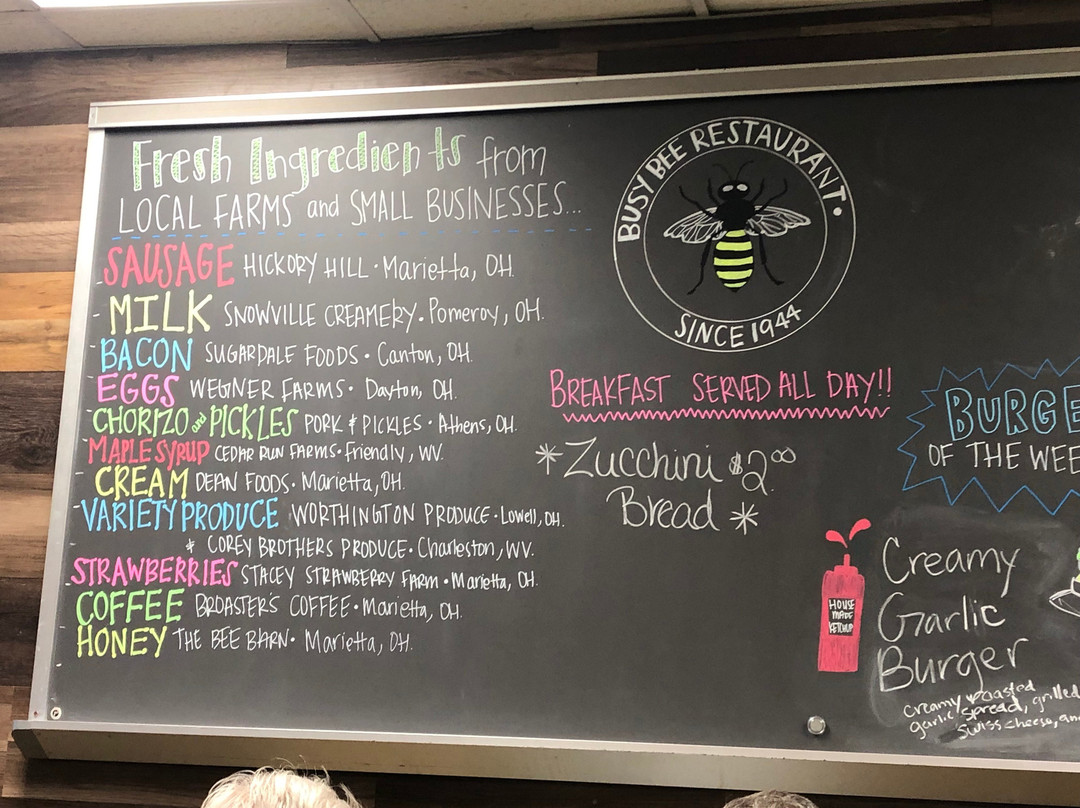 Fresh Ingredients from
LOCAL FARMS and SMALL BUSINESSES...
- SAUSAGE HICKORY HILL · Marietta, OH.
- MILK SNOWVILLE CREAMERY · Pomeroy, OH.
- BACON SUGARDALE FOODS · Canton, OH.
- EGGS WEGNER FARMS · Dayton, OH.
- CHORIZO and PICKLES PORK & PICKLES · Athens, OH.
- MAPLE SYRUP CEDAR RUN FARMS · Friendly, WV.
- CREAM DEAN FOODS · Marietta, OH.
- VARIETY PRODUCE WORTHINGTON PRODUCE · Lowell, OH.
& COREY BROTHERS PRODUCE · Charleston, WV.
- STRAWBERRIES STACEY STRAWBERRY FARM · Marietta, OH.
- COFFEE BROASTER'S COFFEE · Marietta, OH.
- HONEY THE BEE BARN · Marietta, OH.
BUSY BEE RESTAURANT ·
SINCE 1944
BREAKFAST SERVED ALL DAY!!
* Zucchini $2.00
Bread *
BURGE
OF THE WEE
HOUSE
MADE
KETCHUP
Creamy
Garlic
Burger
creamy roasted
garlic spread, grilled
swiss cheese, an